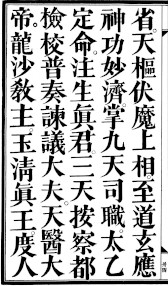 省天樞伏魔上相。至道玄應
神功妙濟掌九天司職。太乙
定命。注生眞君。三天按察都
檢校普奏諫議大夫。天醫大
帝。龍沙敎主。玉淸眞王。度人